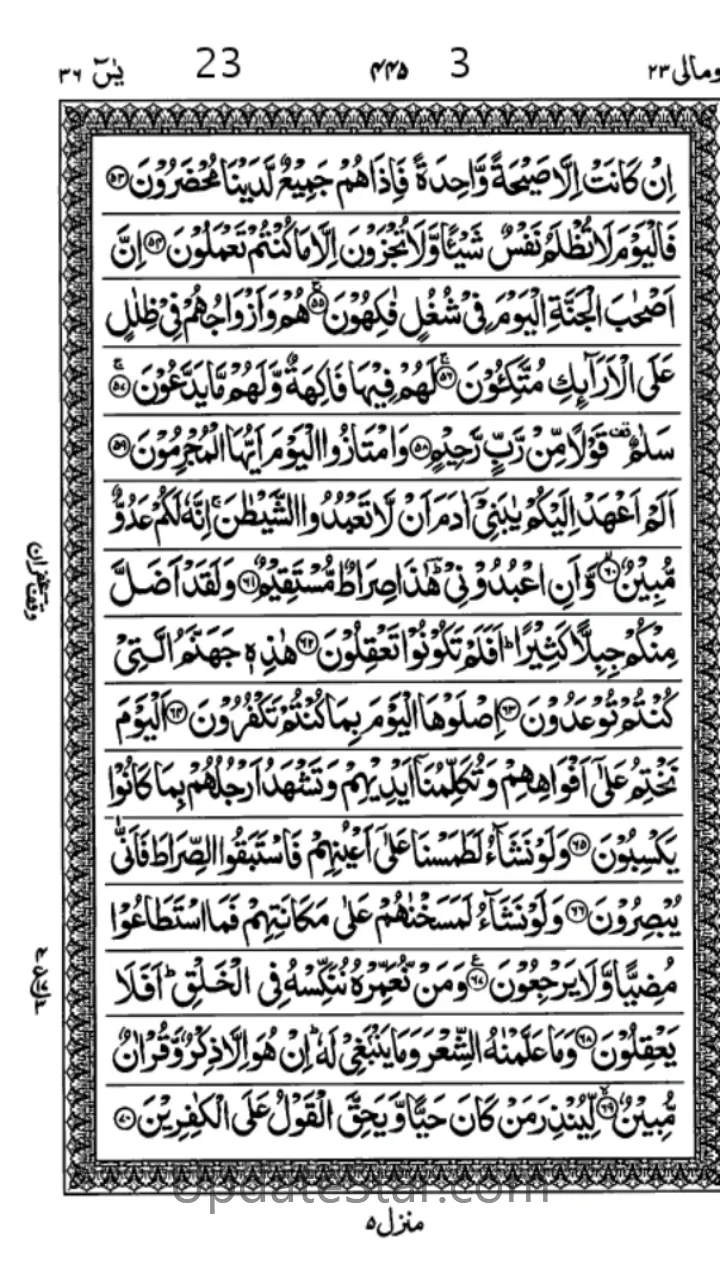 ومالی ٢٣ 3 ٤٤٥ 23 يٰسٓ ٣٦
اِنْ كَانَتْ اِلَّا صَيْحَةً وَّاحِدَةً فَاِذَا هُمْ جَمِيْعٌ لَّدَيْنَا مُحْضَرُوْنَ ۝٥٣
فَالْيَوْمَ لَا تُظْلَمُ نَفْسٌ شَيْـًٔا وَّلَا تُجْزَوْنَ اِلَّا مَا كُنْتُمْ تَعْمَلُوْنَ ۝٥٤ اِنَّ
اَصْحٰبَ الْجَنَّةِ الْيَوْمَ فِيْ شُغُلٍ فٰكِهُوْنَ ۝٥٥ۚ هُمْ وَاَزْوَاجُهُمْ فِيْ ظِلٰلٍ
عَلَى الْاَرَآىِٕكِ مُتَّكِـُٔوْنَ ۝٥٦ۚ لَهُمْ فِيْهَا فَاكِهَةٌ وَّلَهُمْ مَّا يَدَّعُوْنَ ۝٥٧ۚ
سَلٰمٌ ۣ قف قَوْلًا مِّنْ رَّبٍّ رَّحِيْمٍ ۝٥٨ وَامْتَازُوا الْيَوْمَ اَيُّهَا الْمُجْرِمُوْنَ ۝٥٩
اَلَمْ اَعْهَدْ اِلَيْكُمْ يٰبَنِيْٓ اٰدَمَ اَنْ لَّا تَعْبُدُوا الشَّيْطٰنَ ۚ اِنَّهٗ لَكُمْ عَدُوٌّ
مُّبِيْنٌ ۝٦٠ۙ وَّاَنِ اعْبُدُوْنِيْ ؕ هٰذَا صِرَاطٌ مُّسْتَقِيْمٌ ۝٦١ وَلَقَدْ اَضَلَّ
مِنْكُمْ جِبِلًّا كَثِيْرًا ؕ اَفَلَمْ تَكُوْنُوْا تَعْقِلُوْنَ ۝٦٢ هٰذِهٖ جَهَنَّمُ الَّتِيْ
كُنْتُمْ تُوْعَدُوْنَ ۝٦٣ اِصْلَوْهَا الْيَوْمَ بِمَا كُنْتُمْ تَكْفُرُوْنَ ۝٦٤ اَلْيَوْمَ
نَخْتِمُ عَلٰٓى اَفْوَاهِهِمْ وَتُكَلِّمُنَآ اَيْدِيْهِمْ وَتَشْهَدُ اَرْجُلُهُمْ بِمَا كَانُوْا
يَكْسِبُوْنَ ۝٦٥ وَلَوْ نَشَآءُ لَطَمَسْنَا عَلٰٓى اَعْيُنِهِمْ فَاسْتَبَقُوا الصِّرَاطَ فَاَنّٰى
يُبْصِرُوْنَ ۝٦٦ وَلَوْ نَشَآءُ لَمَسَخْنٰهُمْ عَلٰى مَكَانَتِهِمْ فَمَا اسْتَطَاعُوْا
مُضِيًّا وَّلَا يَرْجِعُوْنَ ۝٦٧ۧ وَمَنْ نُّعَمِّرْهُ نُنَكِّسْهُ فِي الْخَلْقِ ؕ اَفَلَا
يَعْقِلُوْنَ ۝٦٨ وَمَا عَلَّمْنٰهُ الشِّعْرَ وَمَا يَنْۢبَغِيْ لَهٗ ؕ اِنْ هُوَ اِلَّا ذِكْرٌ وَّقُرْاٰنٌ
مُّبِيْنٌ ۝٦٩ۙ لِّيُنْذِرَ مَنْ كَانَ حَيًّا وَّيَحِقَّ الْقَوْلُ عَلَى الْكٰفِرِيْنَ ۝٧٠
UpdateStar.com
منزل ٥
وقف غفران